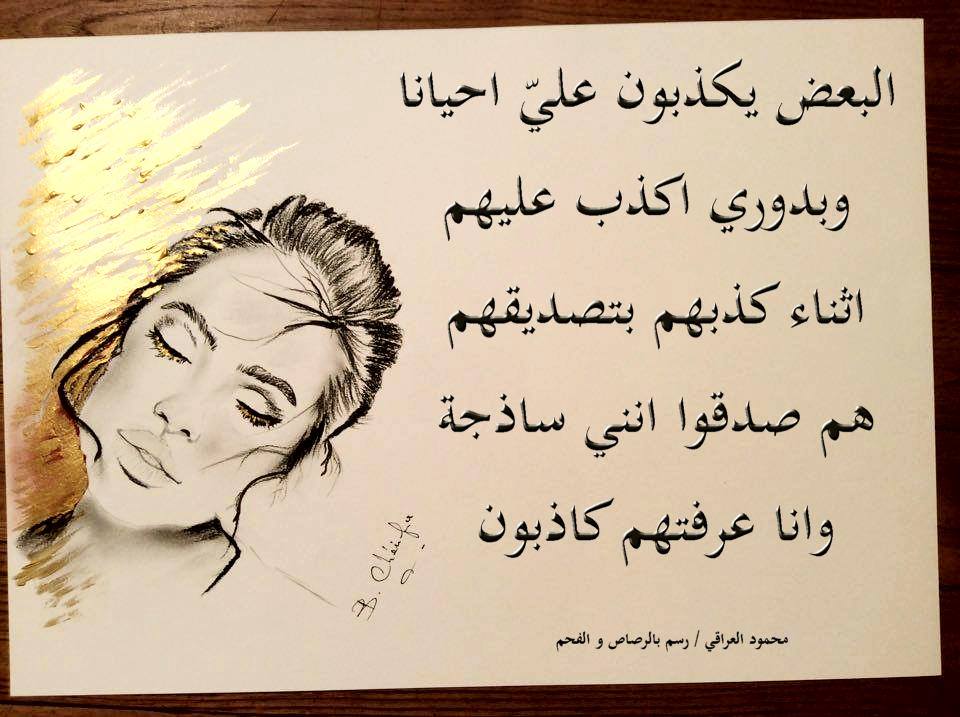 البعض يكذبون عليّ احيانا
وبدوري اكذب عليهم
اثناء كذبهم بتصديقهم
هم صدقوا انني ساذجة
وانا عرفتهم كاذبون
محمود العراقي / رسم بالرصاص و الفحم